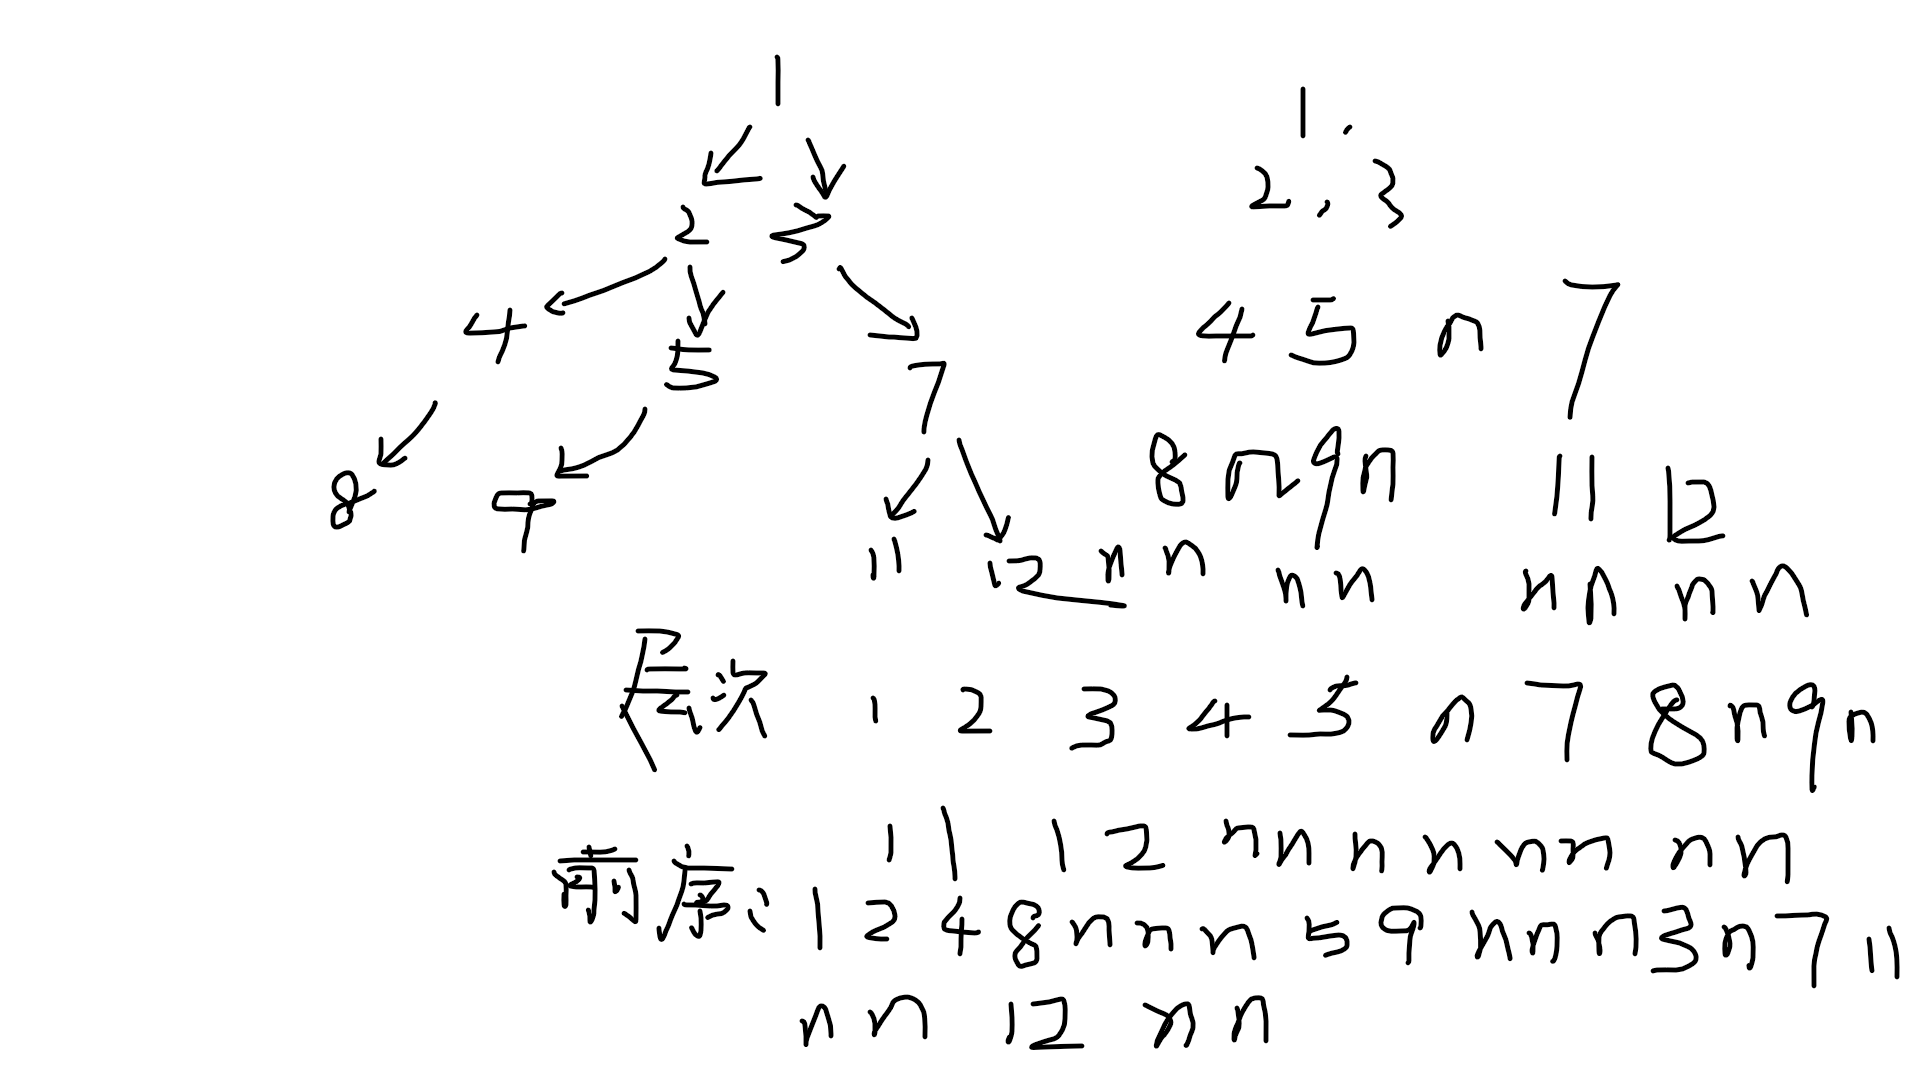 1
2 3
4 5 7
8 9 11 12
1,
2,3
4 5 n 7
8 n 9 n 11 12
n n n n n n n n
层次 1 2 3 4 5 n 7 8 n 9 n
11 12 n n n n n n n n
前序: 1 2 4 8 n n n 5 9 n n n 3 n 7 11
n n 12 n n